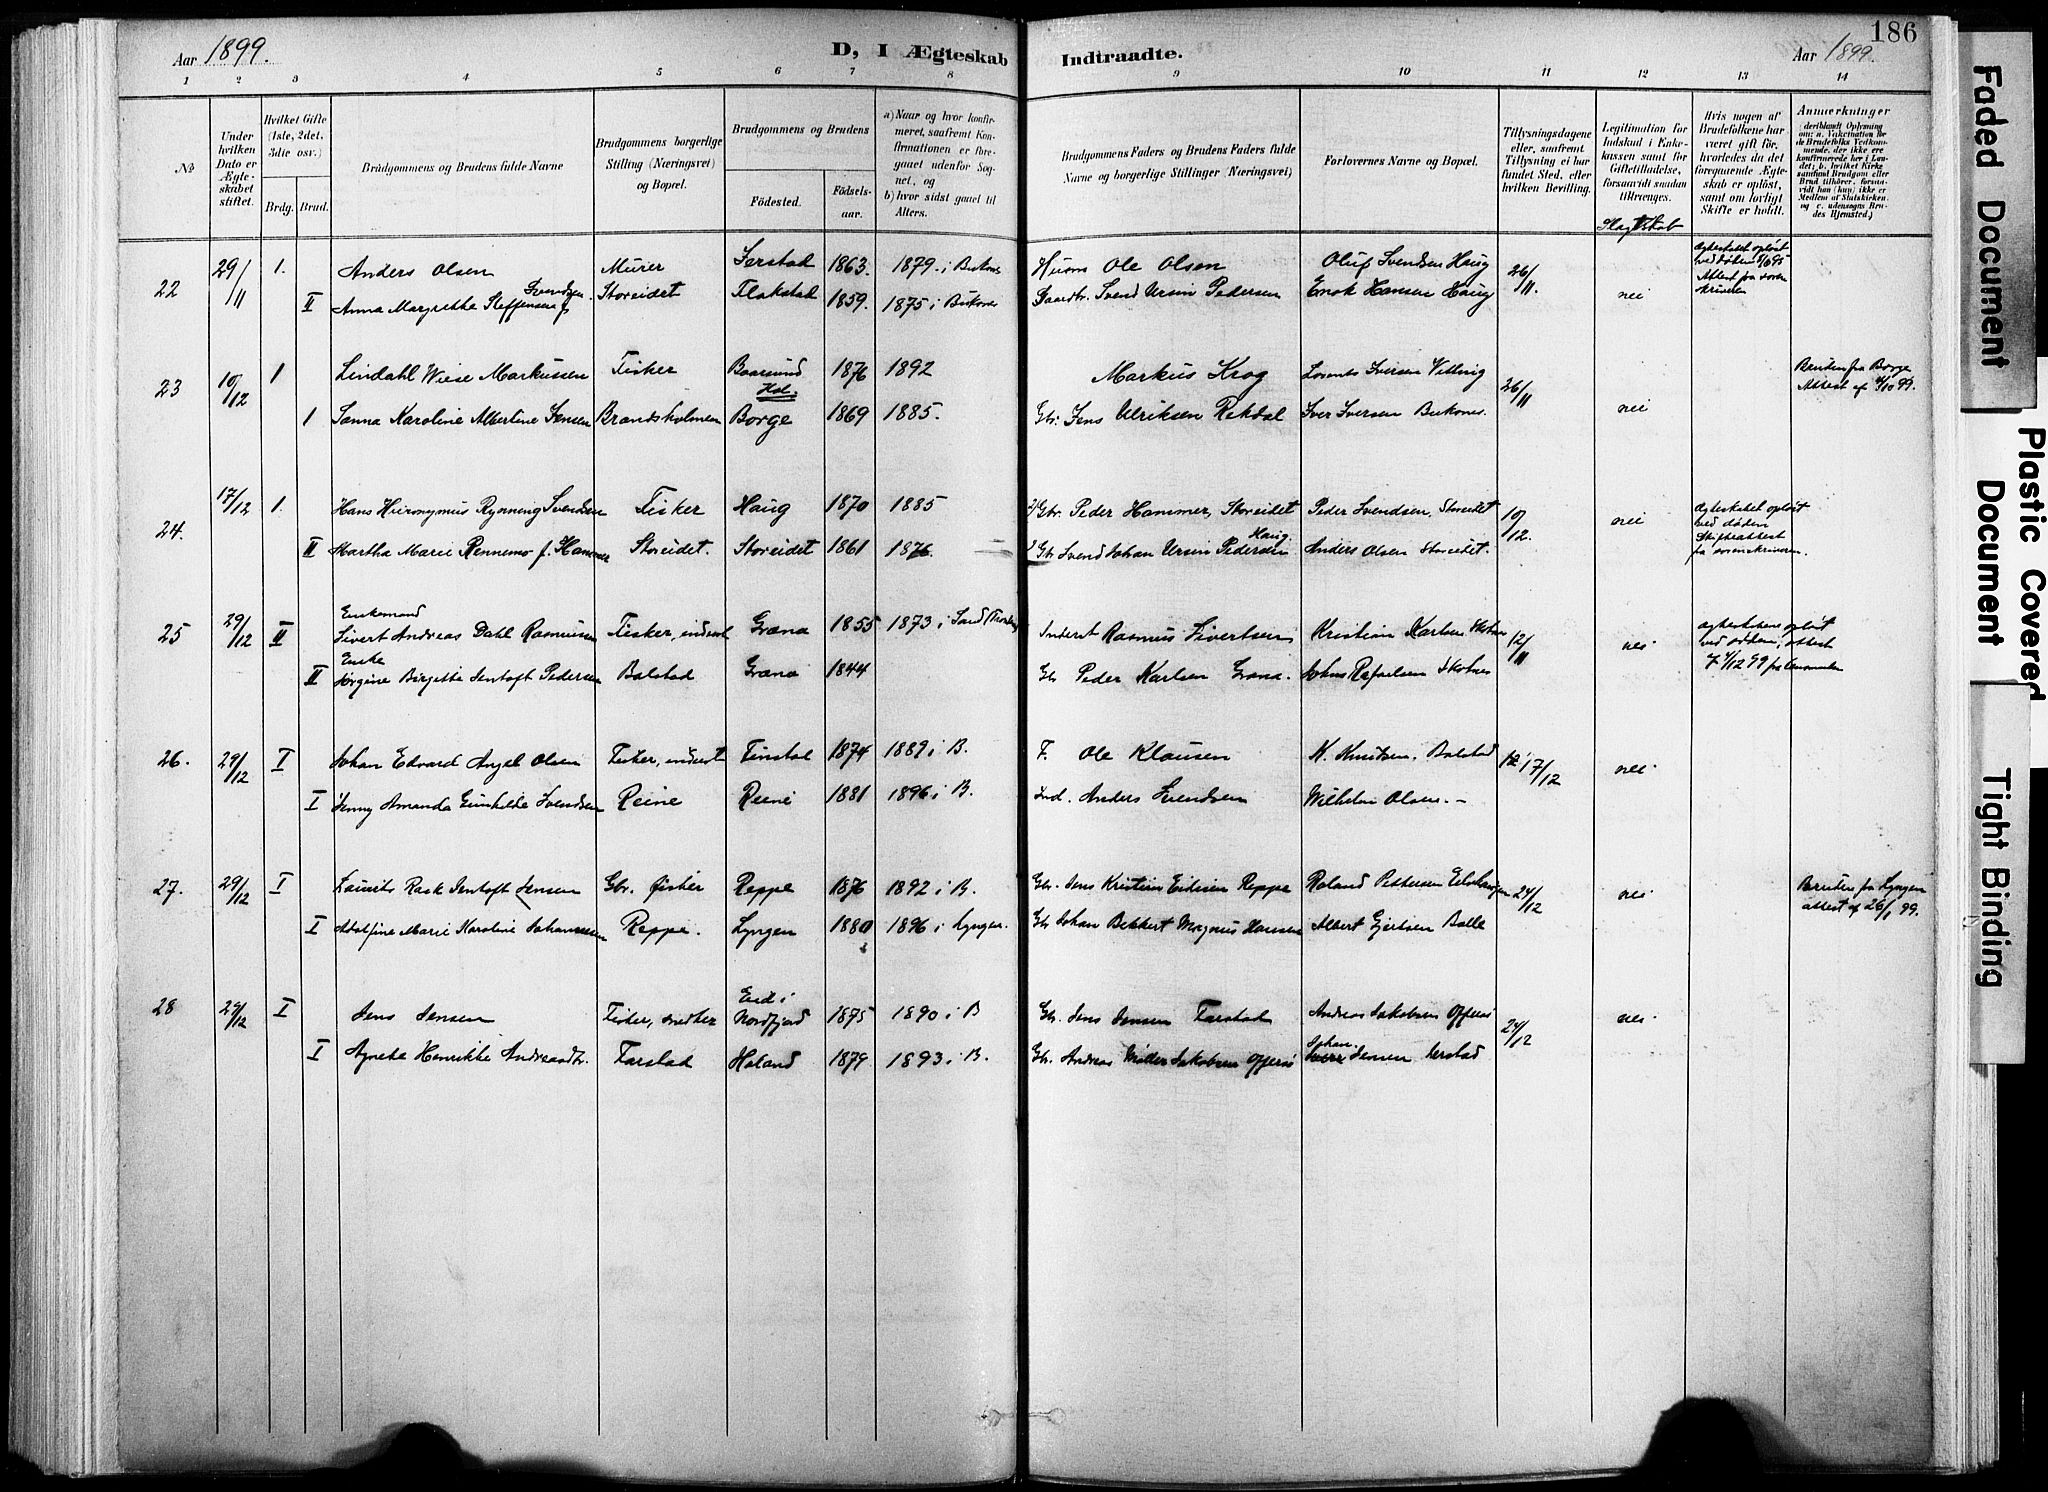 186
Aar 1899.
D, I Ægteskab Indtraadte.
Aar 1899.
1 2 3 4 5 6 7 8 9 10 11 12 13 14
No
Under hvilken Dato er Ægteskabet stiftet.
Hvilket Gifte (1ste, 2det, 3die osv.)
Brdg. Brud.
Brudgommens og Brudens fulde Navne
Brudgommens borgerlige Stilling (Næringsvei) og Bopæl.
Brudgommens og Brudens
Fødested. Fødselsaar.
a) Naar og hvor konfirmeret, saafremt Konfirmationen er foregaaet udenfor Sognet, og
b) hvor sidst gaaet til Alters.
Brudgommens Faders og Brudens Faders fulde Navne og borgerlige Stillinger (Næringsvei)
Forlovernes Navne og Bopæl.
Tillysningsdagene eller, saafremt Tillysning ei har fundet Sted, efter hvilken Bevilling.
Legitimation for Indskud i Enkekassen samt for Giftetilladelse, forsaavidt saadan tiltrænges.
Slagtskab
Hvis nogen af Brudefolkene har været gift før, hvorledes da det foregaaende Ægteskab er opløst, samt om lovligt Skifte er holdt.
Anmærkninger
(deriblandt Oplysning om: a. Vakcination for de Brudefolks Vedkommende, der ikke ere konfirmerede her i Landet; b. hvilket Kirkesamfund Brudgom eller Brud tilhører, forsaavidt han (hun) ikke er Medlem af Statskirken, og c. udensogns Brudes Hjemsted.)
22 29/11 1. Anders Olsen Murer 1863. 1879. i Buksnes Husm Ole Olsen Oluf Svendsen Haug 26/11. nei
Ægteskabet opløst ved døden 8/6 95 Attest fra sorenskriveren
II Anna Margrethe Steffensen f. Svendsen. Storeidet Flakstad 1859. 1875 i Buksnes Gaardbr. Svend Ursin Pedersen Enok Hansen Haug
23 10/12 1 Lindahl Wiese Markussen Fisker Baarsund Hol. 1876 1892 Markus Krog 26/11 nei
Bruden fra Borge Attest af 4/10 99.
1 Sanna Karoline Albertine Jensen Brandsholmen Borge 1869 1885. Gbr. Jens Ulriksen Rekdal Iver Iversen Buksnes.
24. 17/12 1. Hans Hieronymus Rynning Svendsen Fisker Haug 1870 1885 Gbr. Peder Hammer, Storeidet Peder Svendsen, Storeidet 10/12. nei
Ægteskabet opløst ved døden Skifteattest fra sorenskriveren.
II Martha Marie Rennemo f. Hammer Storeidet. Storeidet 1861 1876. Gbr. Svend Johan Ursin Pedersen Haug. Anders Olsen Storeidet.
25 29/12 II Enkemand
Sivert Andreas Dahl Rasmussen Fisker, inderst Græna 1855 1873 i Inderst Rasmus Sivertsen Kristian Karlsen 12/11 nei
II Enke
Jørgine Birgitte Jentoft Pedersen Balstad Græna 1844 Gb Peder Karlsen Græna. Johns Rafaelsen Skotnes
26. 29/12 I Johan Edvard Angel Olsen Fisker, inderst Finstad 1874 1889 i B. F. Ole Klausen K. Knutsen, Balstad 17/12 nei
I Jenny Amanda Gunhilde Svendsen Reine Reine 1881 1896 i B. Ind. Anders Svendsen Wilhelm Olsen. -
27. 29/12 I Laurits Rask Jentoft Jensen Gbr. fisker Reppe 1876 1892 i B. Gbr. Jens Kristian Eidisen Reppe Roland Pettersen 24/12 nei
Bruden fra Lyngen attest af 26/1 99.
I Adolfine Marie Karoline Johannessen Reppe. Lyngen 1880 1896 i Lyngen. Gb Johan Bekkert Magnus Hansen Albert Gjertsen Balle
28 29/12 I Jens Jensen Fisker, snedker Eid i Nordfjord 1875 1890 i B Gbr. Jens Jensen Farstad Andreas Jakobsen Offersø 24/12 nei
I Agnete Henrikke Andreasdtr. Farstad Holand 1879 1893 i B. Gbr. Andreas Møller Jakobsen Offersø Johan Jensen
Faded Document
Plastic Covered Document
Tight Binding